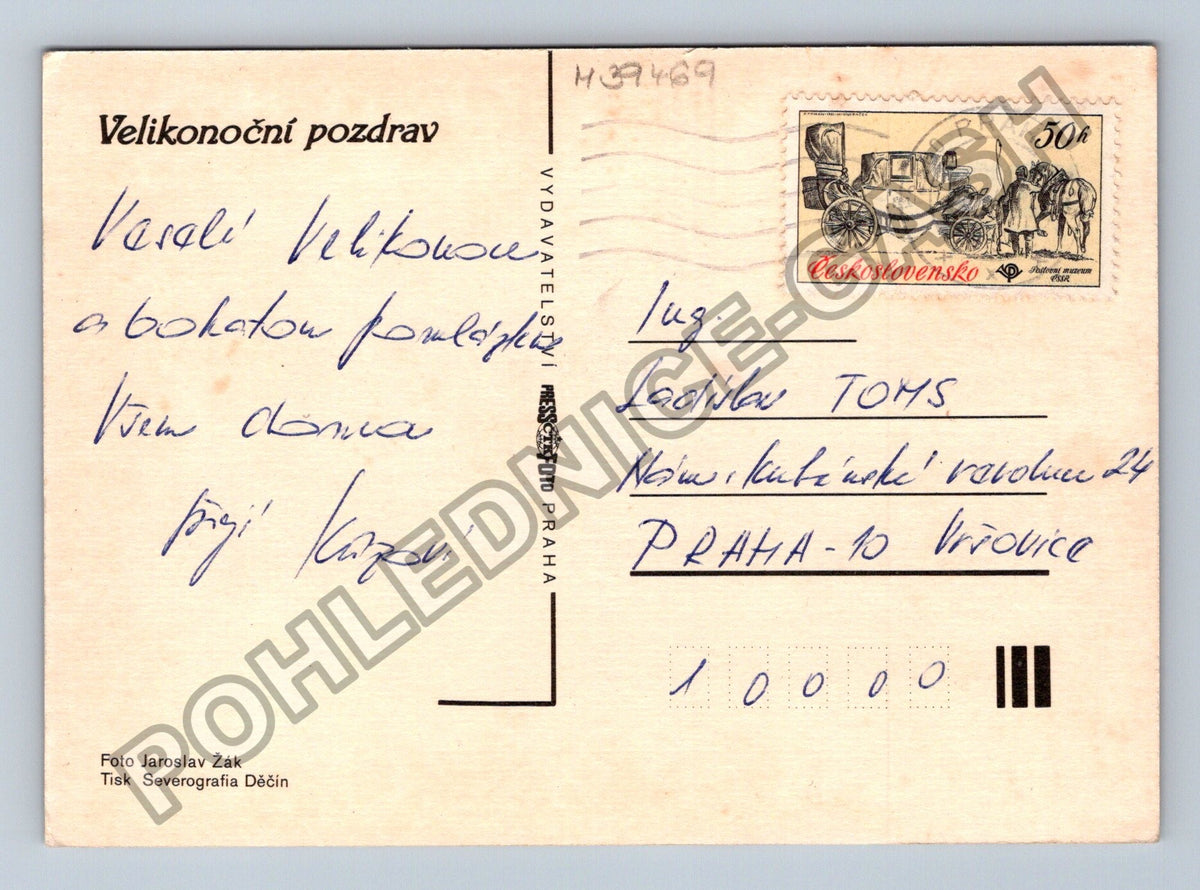 Velikonoční pozdrav
Veselé Velikonoce
a bohatou pomlázku
Všem doma
přejí
VYDAVATELSTVÍ PRESSFOTO PRAHA
ČTK
M39469
50h
Československo
Poštovní muzeum
ČSSR
Ing.
Ladislav TOMS
Nám. Kubánské revoluce 24
PRAHA-10 Vršovice
1 0 0 0 0
Foto Jaroslav Žák
Tisk Severografia Děčín
POHLEDNICE-CASH